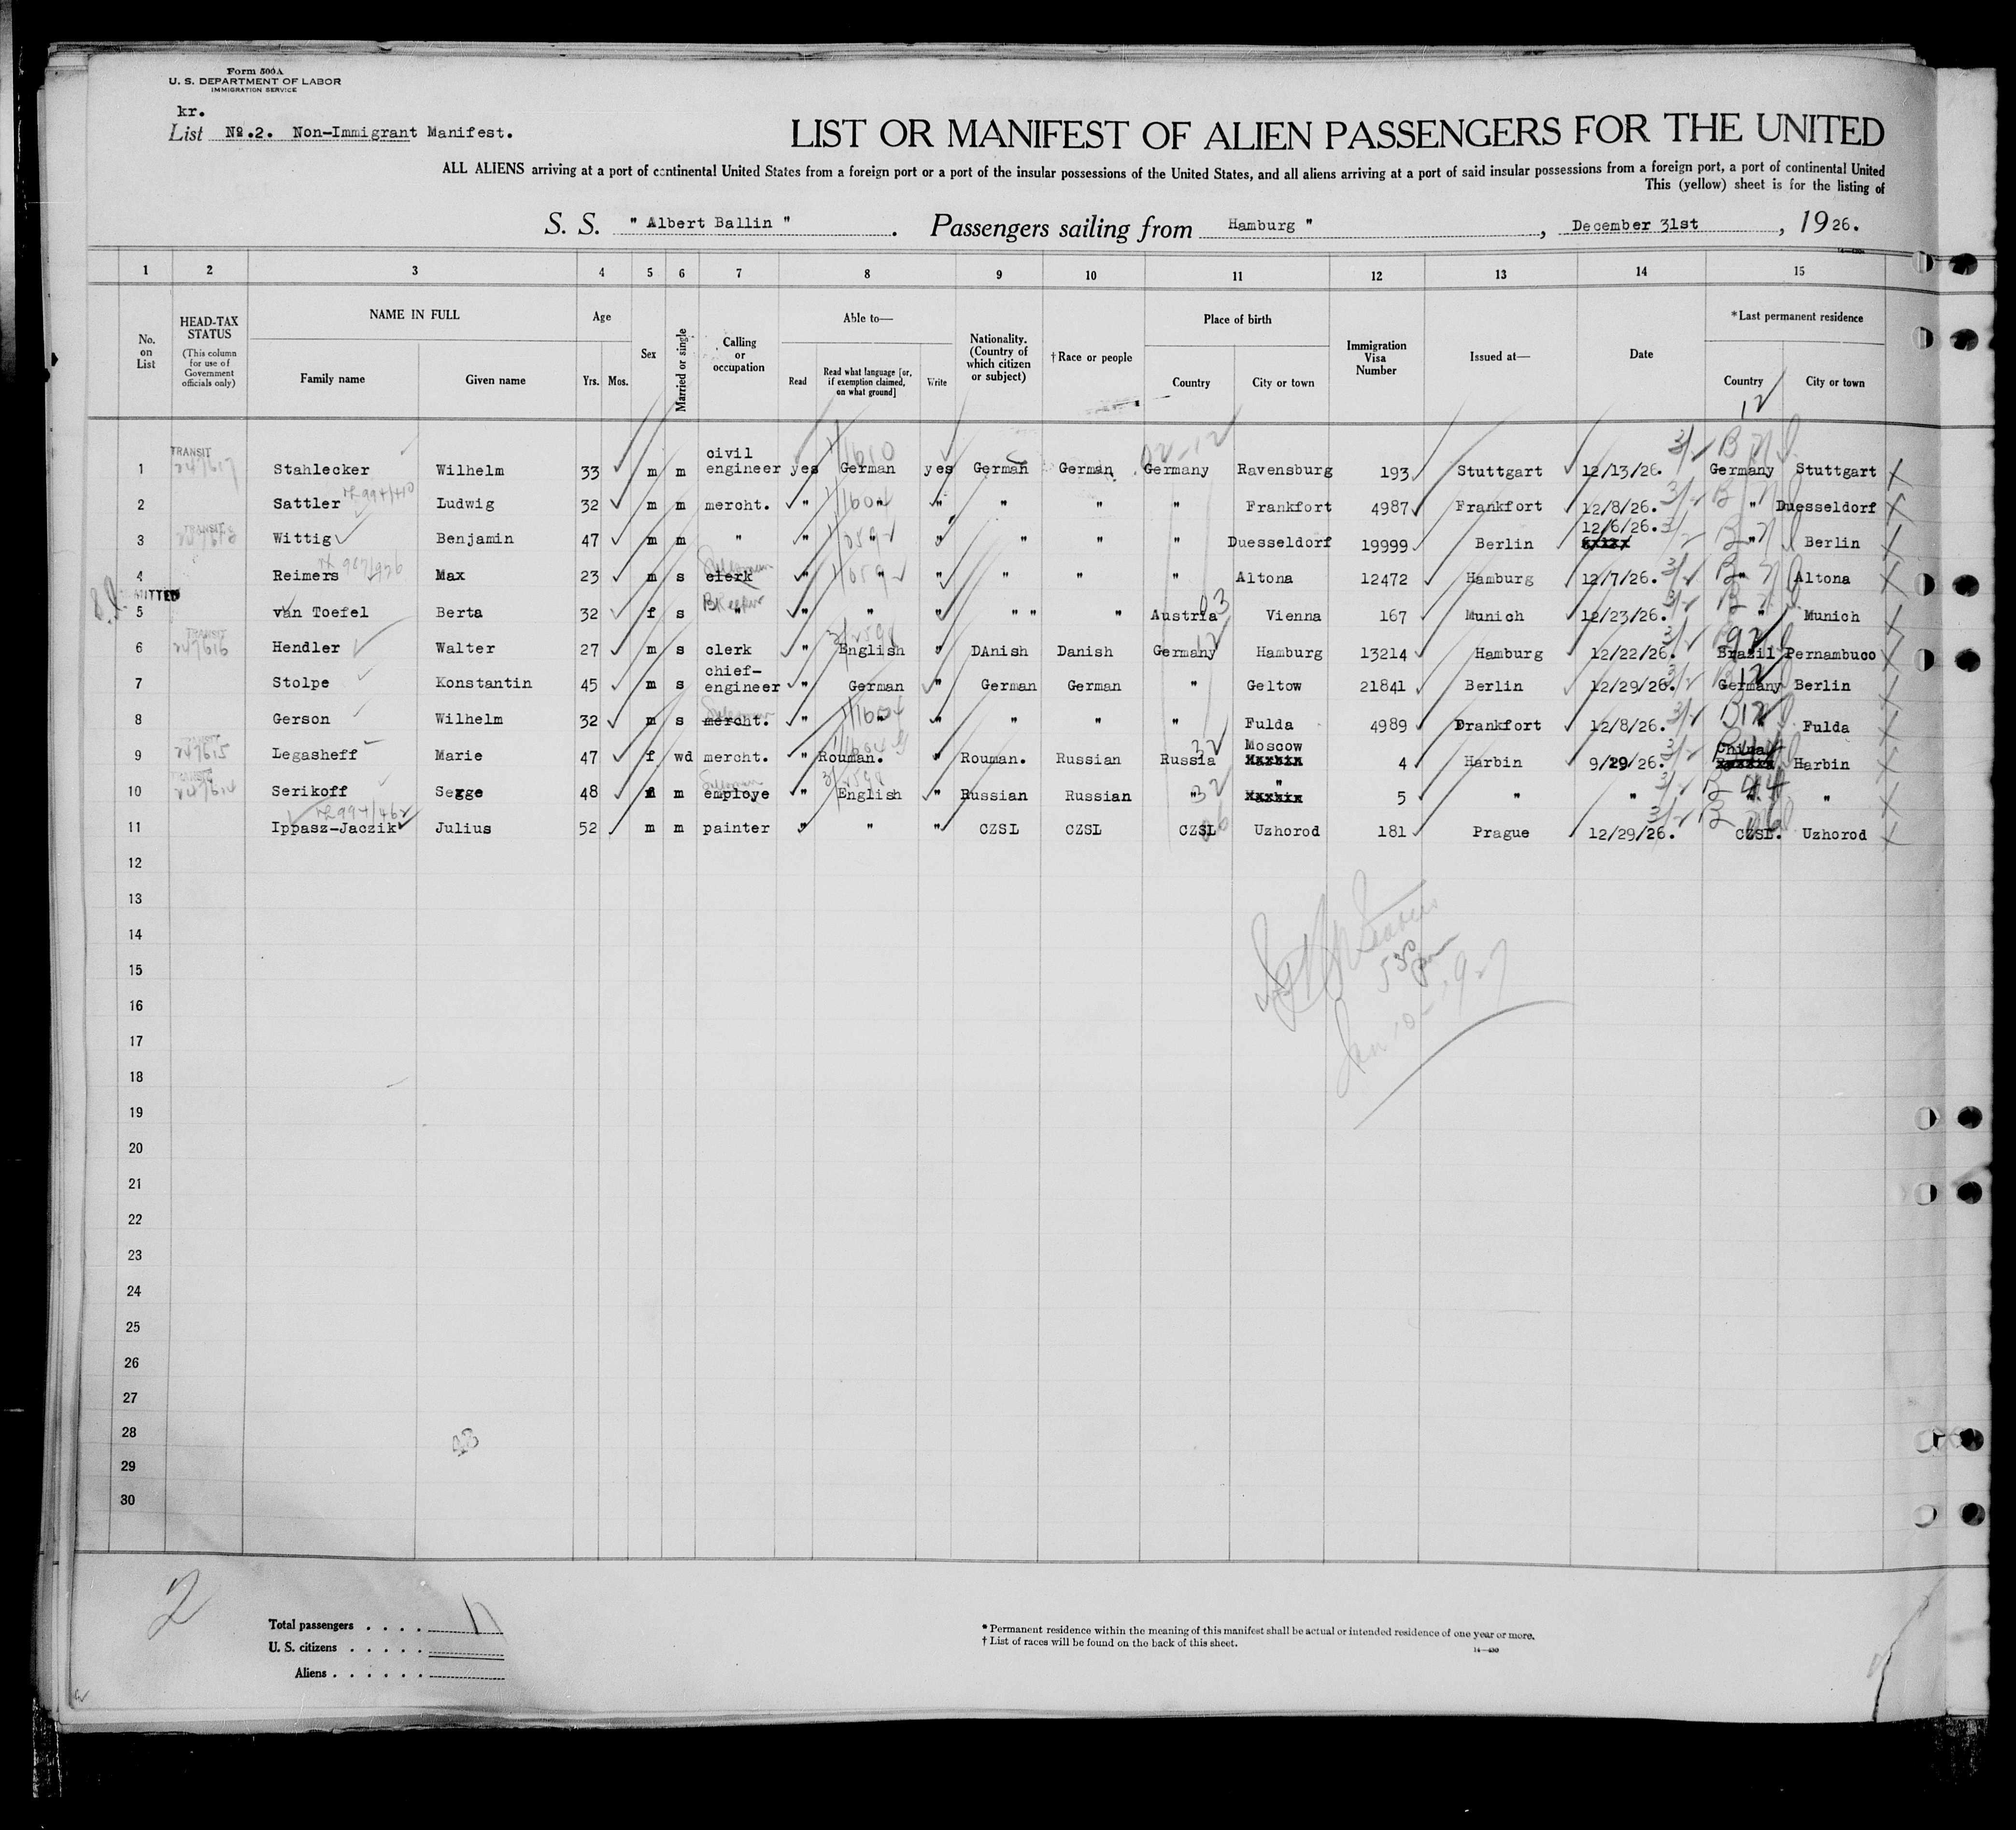 Form 500A
U. S. DEPARTMENT OF LABOR
IMMIGRATION SERVICE
kr.
List No.2. Non-Immigrant Manifest.
LIST OR MANIFEST OF ALIEN PASSENGERS FOR THE UNITED
ALL ALIENS arriving at a port of continental United States from a foreign port or a port of the insular possessions of the United States, and all aliens arriving at a port of said insular possessions from a foreign port, a port of continental United
This (yellow) sheet is for the listing of
S. S. " Albert Ballin " . Passengers sailing from Hamburg " , December 31st , 1926.
1 2 3 4 5 6 7 8 9 10 11 12 13 14 15
No. on List
HEAD-TAX STATUS (This column for use of Government officials only)
NAME IN FULL Family name Given name
Age Yrs. Mos.
Sex
Married or single
Calling or occupation
Able to— Read Read what language [or, if exemption claimed, on what ground] Write
Nationality. (Country of which citizen or subject)
†Race or people
Place of birth Country City or town
Immigration Visa Number
Issued at—
Date
*Last permanent residence Country City or town
12
1 TRANSIT 247617 Stahlecker Wilhelm 33 m m civil engineer yes German 1/1610 yes German German Germany 02-12 Ravensburg 193 Stuttgart 12/13/26. Germany Stuttgart
2 Sattler Ludwig 32 m m mercht. " " 1/1604 " " " " Frankfort 4987 Frankfort 12/8/26. " Duesseldorf
3 TRANSIT Wittig Benjamin 47 m m " " " " " " " Duesseldorf 19999 Berlin 12/6/26. " Berlin
4 Reimers Max 23 m s clerk Salesman " " " " " " Altona 12472 Hamburg 12/7/26. " Altona
ADMITTED
5 van Toefel Berta 32 f s " BKeeper " " " " " " Austria 03 Vienna 167 Munich 12/23/26. " Munich
6 TRANSIT 247616 Hendler Walter 27 m s clerk " English " DAnish Danish Germany 12 Hamburg 13214 Hamburg 12/22/26. Brazil 92 Pernambuco
7 Stolpe Konstantin 45 m s chief-engineer " German " German German " Geltow 21841 Berlin 12/29/26. Germany 12 Berlin
8 Gerson Wilhelm 32 m s mercht. Salesman " " 1/1604 " " " " Fulda 4989 Drankfort 12/8/26. " Fulda
9 TRANSIT 247615 Legasheff Marie 47 f wd mercht. " Rouman. " Rouman. Russian Russia 32 Moscow 4 Harbin 9/29/26. China Harbin
10 TRANSIT 247614 Serikoff Segge 48 m employe Salesman " English " Russian Russian " 32 " 5 " " " 44 "
11 Ippasz-Jaczik Julius 52 m m painter " " " CZSL CZSL CZSL Uzhorod 181 Prague 12/29/26. CZSL. Uzhorod
12
13
14
15
16
17
18
19
20
21
22
23
24
25
26
27
28
29
30
530 pm
Jan 10 - 1927
2
Total passengers . . . . 11
U. S. citizens . . . . .
Aliens . . . . . .
* Permanent residence within the meaning of this manifest shall be actual or intended residence of one year or more.
† List of races will be found on the back of this sheet.